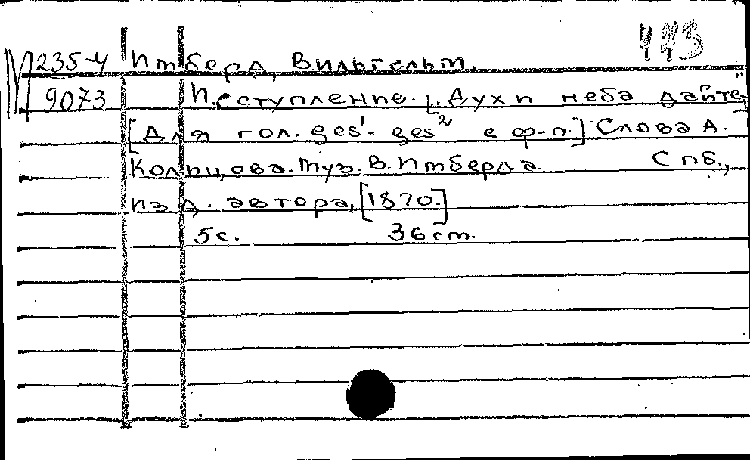 443
М 235-4 Имберд, Вильгельм.
9073 Исступление. "Духи неба дайте"
[Для гол. des¹-ges² с ф-п.] Слова А.
Кольцова. Муз. В. Имберда. Спб.,
изд. автора, [1870.]
5с. 36 см.